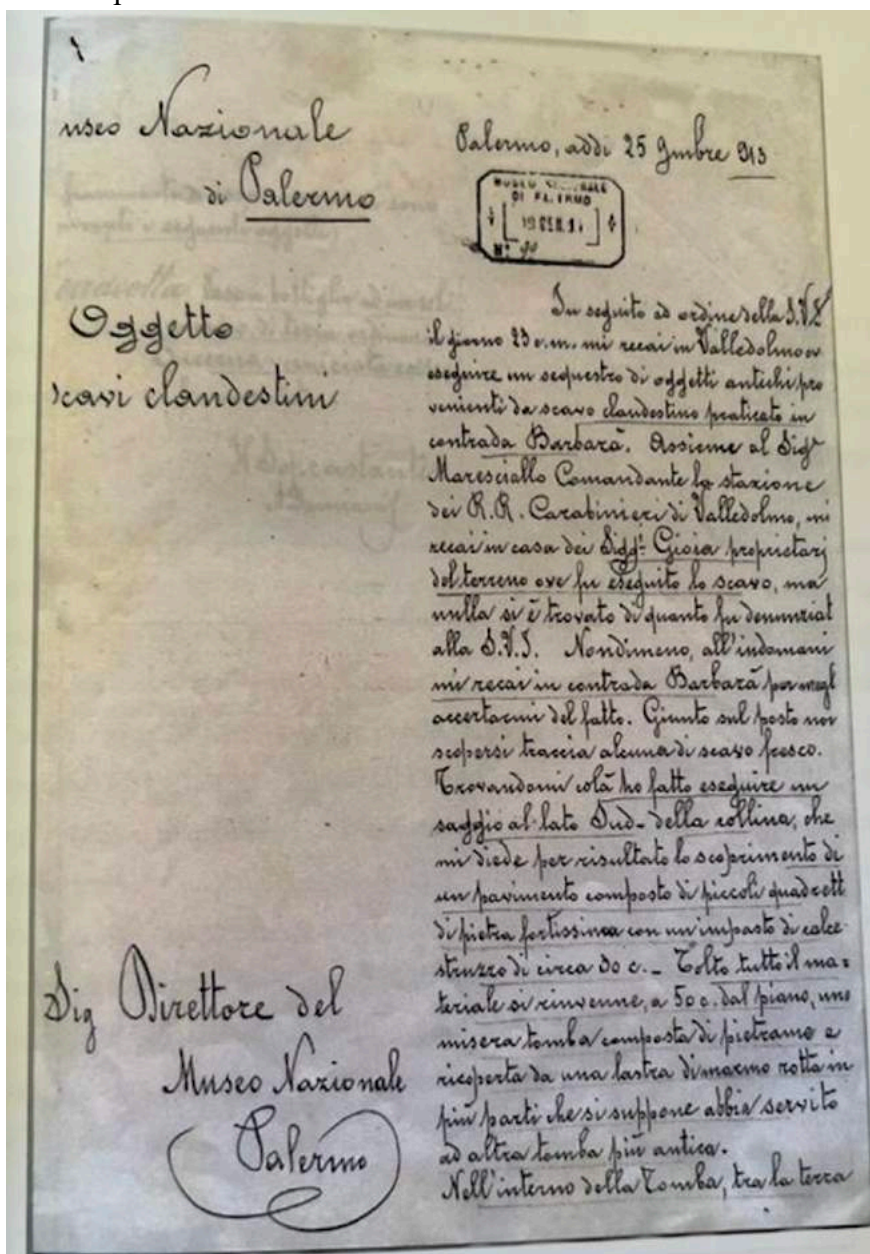 useo Nazionale
di Palermo
Oggetto
scavi clandestini
Sig Direttore del
Museo Nazionale
Palermo
Palermo, addì 25 9mbre 913
MUSEO NAZIONALE
DI PALERMO
N°
In seguito ad ordine della S.V.I.
il giorno 23 c.m. mi recai in Valledolmo
eseguire un sequestro di oggetti antichi pro
venienti da scavo clandestino praticato in
contrada Barbarà. Assieme al Sigr
Maresciallo Comandante la stazione
dei R.R. Carabinieri di Valledolmo, mi
recai in casa dei Sigg: Gioia proprietarj
del terreno ove fu eseguito lo scavo, ma
nulla si è trovato di quanto fu denunziat
alla S.V.I. Nondimeno, all'indomani
mi recai in contrada Barbarà per megl
accertarmi del fatto. Giunto sul posto non
scopersi traccia alcuna di scavo fresco.
Trovandomi colà ho fatto eseguire un
saggio al lato Sud-della collina, che
mi diede per risultato lo scoprimento di
un pavimento composto di piccoli quadrett
di pietra fortissima con un'imposto di calce
struzzo di circa 30 c. - Tolto tutto il ma=
teriale si rinvenne, a 50 c. dal piano, una
misera tomba composta di pietrame e
ricoperta da una lastra di marmo rotta in
più parti che si suppone abbia servito
ad altra tomba più antica.
Nell'interno della Tomba, tra la terra